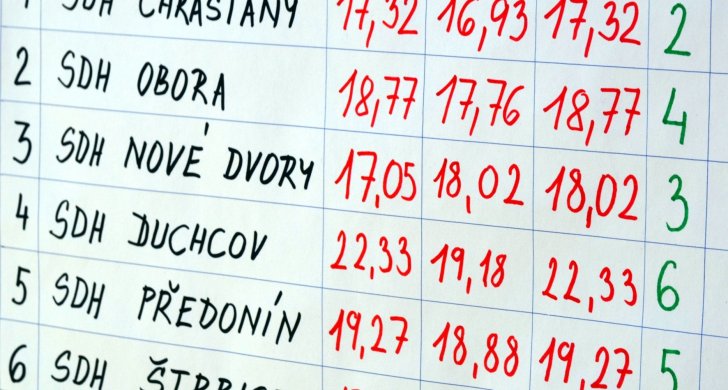 1 SDH CHRÁŠŤANY 17,32 16,93 17,32 2
2 SDH OBORA 18,77 17,76 18,77 4
3 SDH NOVÉ DVORY 17,05 18,02 18,02 3
4 SDH DUCHCOV 22,33 19,18 22,33 6
5 SDH PŘEDONÍN 19,27 18,88 19,27 5
6 SDH